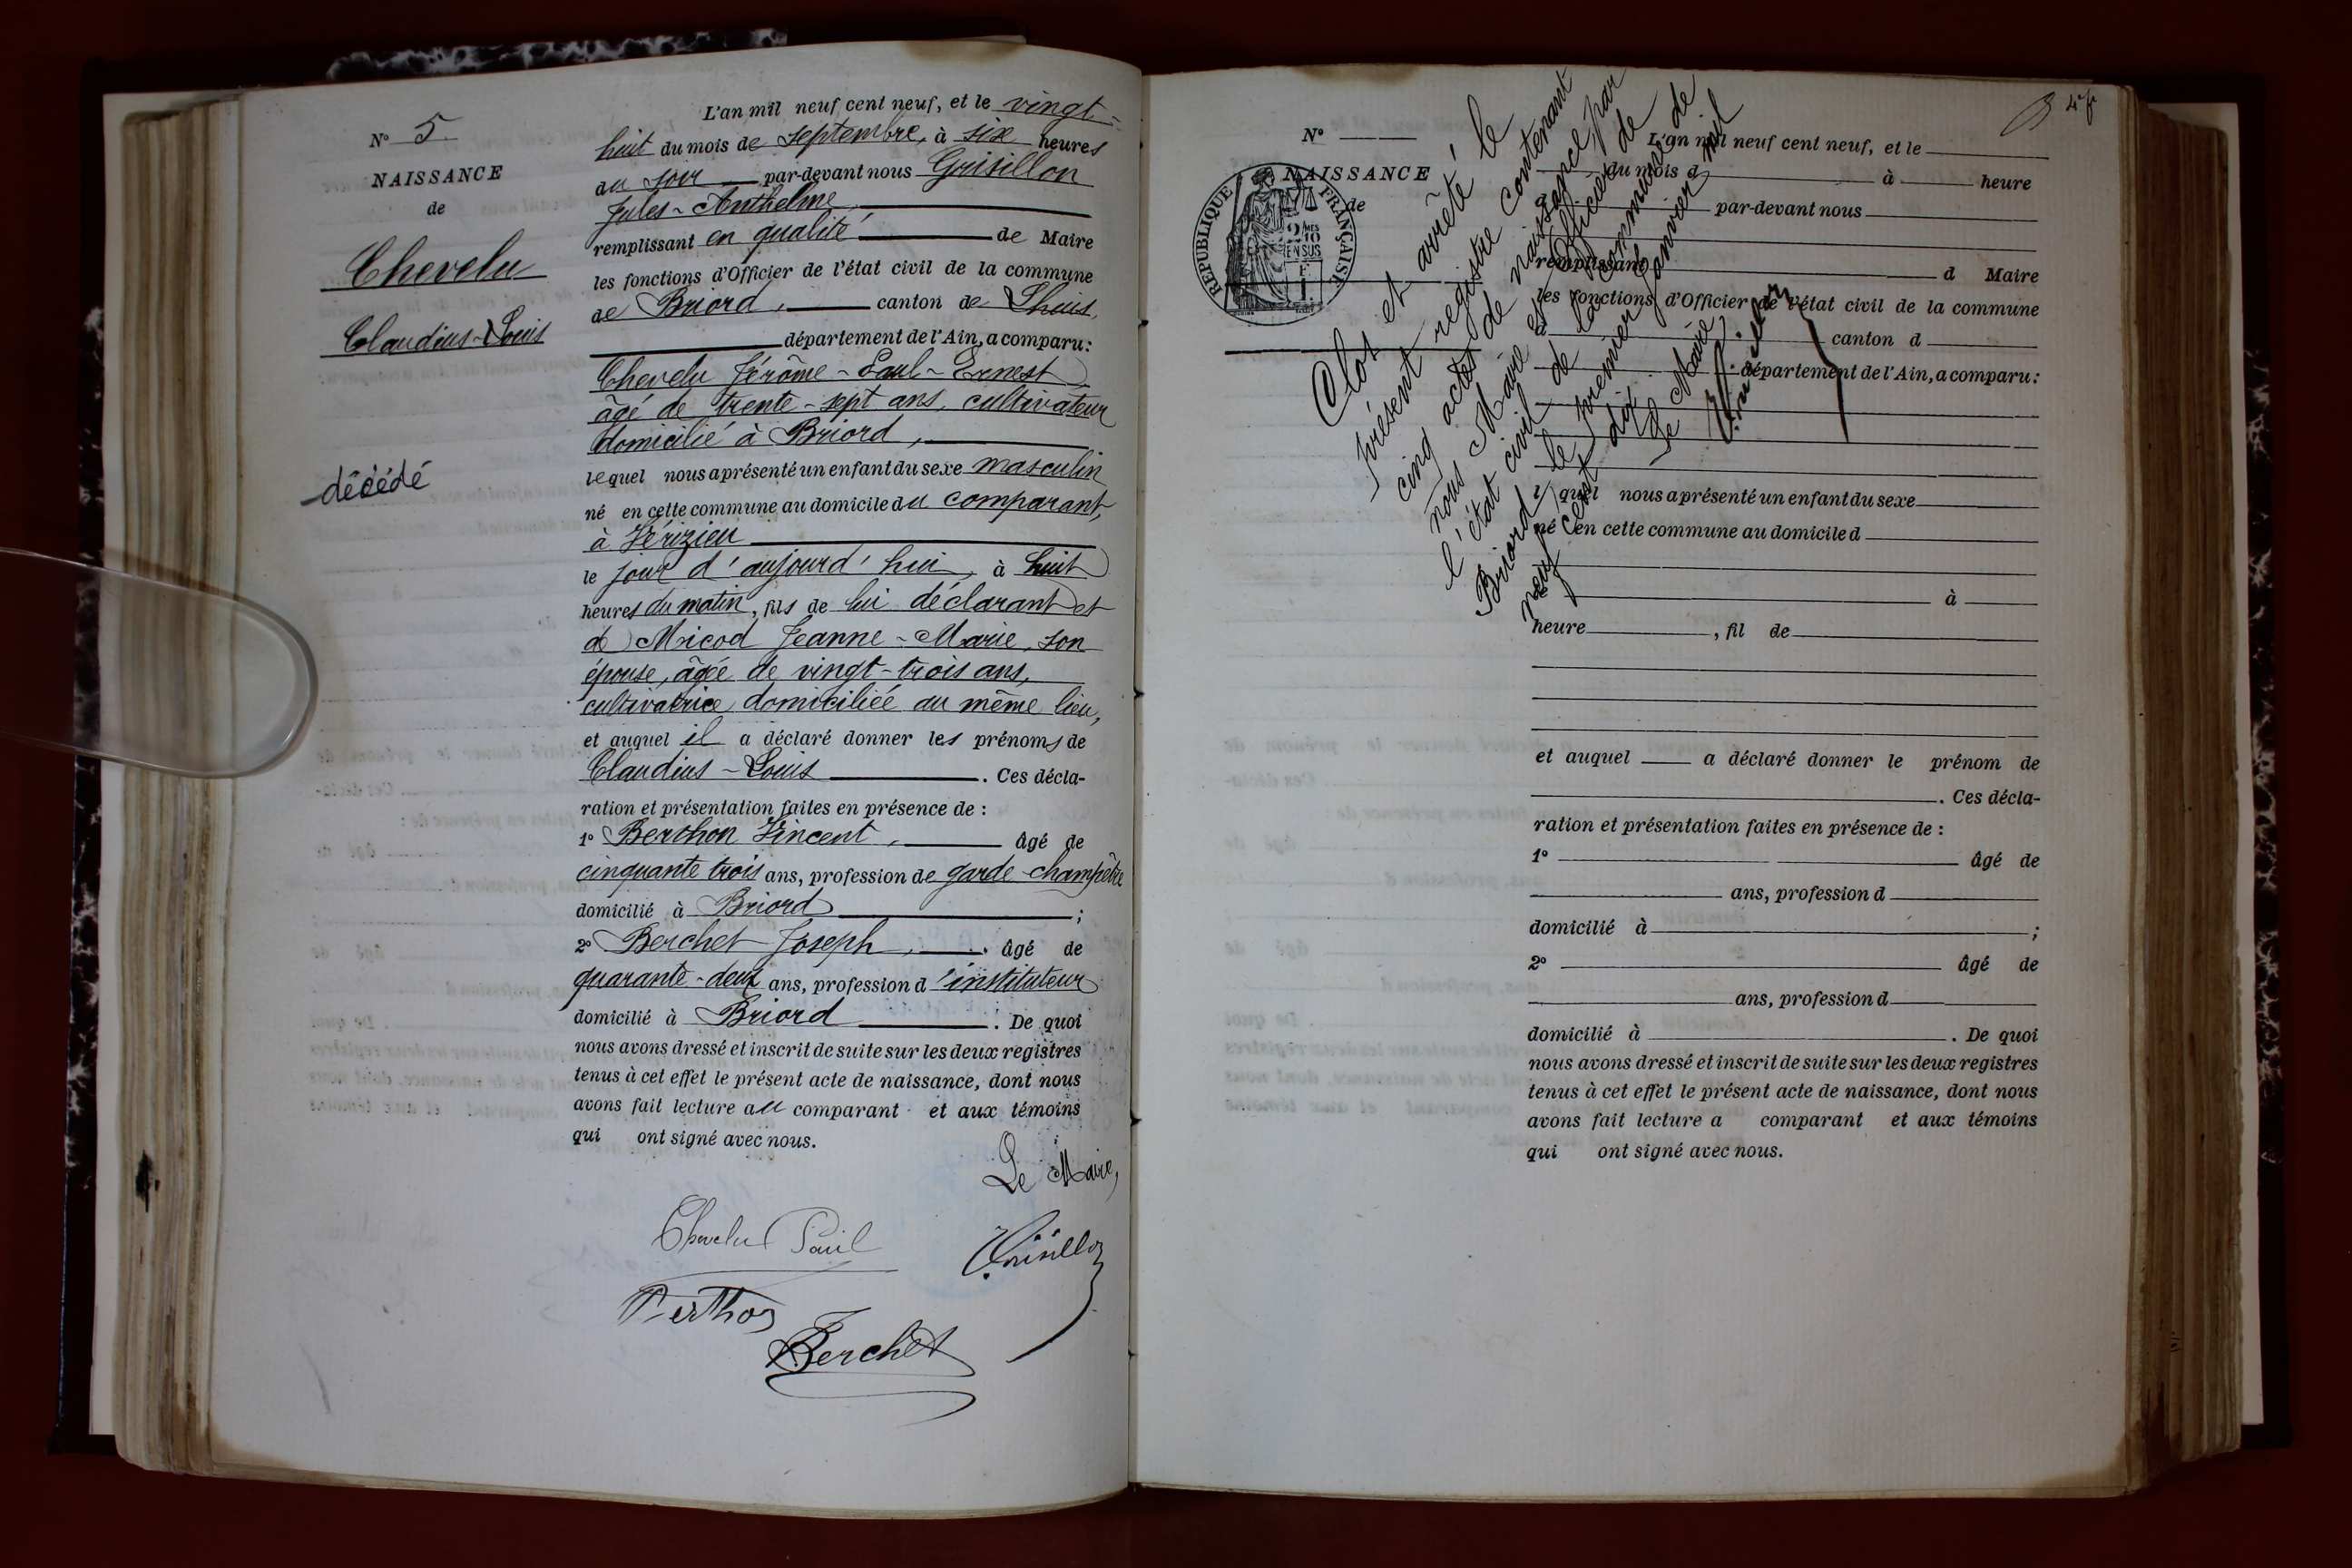 N° 5
NAISSANCE
de
Chevelu
Claudius-Louis
décédé
L'an mil neuf cent neuf, et le vingt-
huit du mois de septembre, à six heures
du soir par-devant nous Grisillon
Jules-Anthelme,
remplissant en qualité de Maire
les fonctions d'Officier de l'état civil de la commune
de Briord, canton de Lhuis,
département de l'Ain, a comparu:
Chevelu Jérôme-Paul-Ernest
âgé de trente-sept ans, cultivateur
domicilié à Briord,
lequel nous a présenté un enfant du sexe masculin
né en cette commune au domicile du comparant,
à Vérizieu
le jour d'aujourd'hui, à huit
heures du matin, fils de lui déclarant et
de Micod Jeanne-Marie, son
épouse, âgée de vingt-trois ans,
cultivatrice domiciliée au même lieu,
et auquel il a déclaré donner les prénoms de
Claudius-Louis. Ces décla-
ration et présentation faites en présence de :
1° Berthon Vincent, âgé de
cinquante trois ans, profession de garde-champêtre
domicilié à Briord ;
2° Berchet Joseph, âgé de
quarante-deux ans, profession d'instituteur
domicilié à Briord. De quoi
nous avons dressé et inscrit de suite sur les deux registres
tenus à cet effet le présent acte de naissance, dont nous
avons fait lecture au comparant et aux témoins
qui ont signé avec nous.
Le Maire,
Chevelu Paul
Grisillon
Berthon
Berchet
N°
NAISSANCE
de
RÉPUBLIQUE FRANÇAISE
2/10 EN SUS
1 F.
Clos et arrêté le
présent registre contenant
cinq actes de naissance par
nous Maire et Officier de
l'état civil de la commune de
Briord, le premier janvier mil
neuf cent dix.
Le Maire,
Grisillon
L'an mil neuf cent neuf, et le
du mois d à heure
par-devant nous
remplissant d Maire
les fonctions d'Officier de l'état civil de la commune
canton d
département de l'Ain, a comparu:
l quel nous a présenté un enfant du sexe
né en cette commune au domicile d
à
heure , fil de
et auquel a déclaré donner le prénom de
. Ces décla-
ration et présentation faites en présence de :
1° âgé de
ans, profession d
domicilié à ;
2° âgé de
ans, profession d
domicilié à . De quoi
nous avons dressé et inscrit de suite sur les deux registres
tenus à cet effet le présent acte de naissance, dont nous
avons fait lecture a comparant et aux témoins
qui ont signé avec nous.